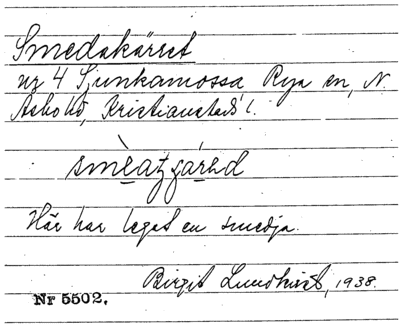 Smedakärret
ur 4 Sjunkamossa, Rya sn, N.
Åsbo hd, Kristianstads l.
Här har legat en smedja.
Birgit Lundkvist, 1938.
Nr 5502.